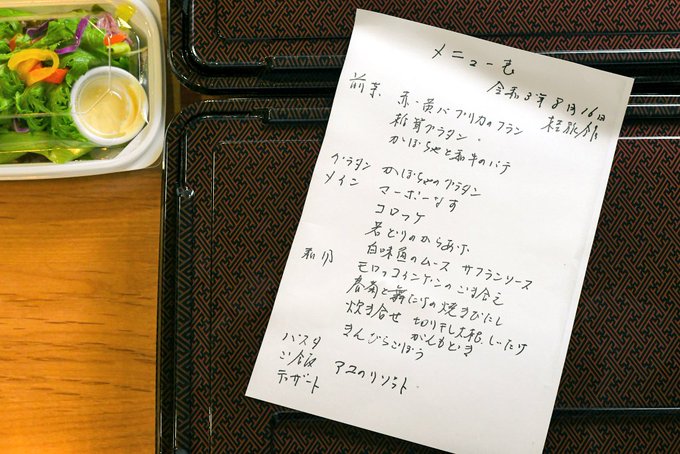 メニュー表
令和3年8月16日
前菜 赤・黄パプリカのフラン
グラタン
かぼちゃと和牛のパテ
グラタン かぼちゃのグラタン
メイン マーボーなす
コロッケ
若どりのからあげ
白味魚のムース サフランソース
モロッコインゲンのごま合え
春菊と舞たけの焼きびたし
炊き合せ 切り干し大根、しいたけ
がんもどき
きんぴらごぼう
パスタ
ご飯 アユのリゾット
デザート